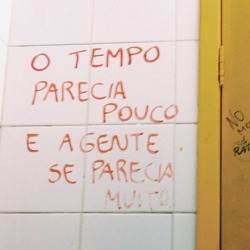 O TEMPO
PARECIA
POUCO
E A GENTE
SE PARECIA
MUITO.
NO